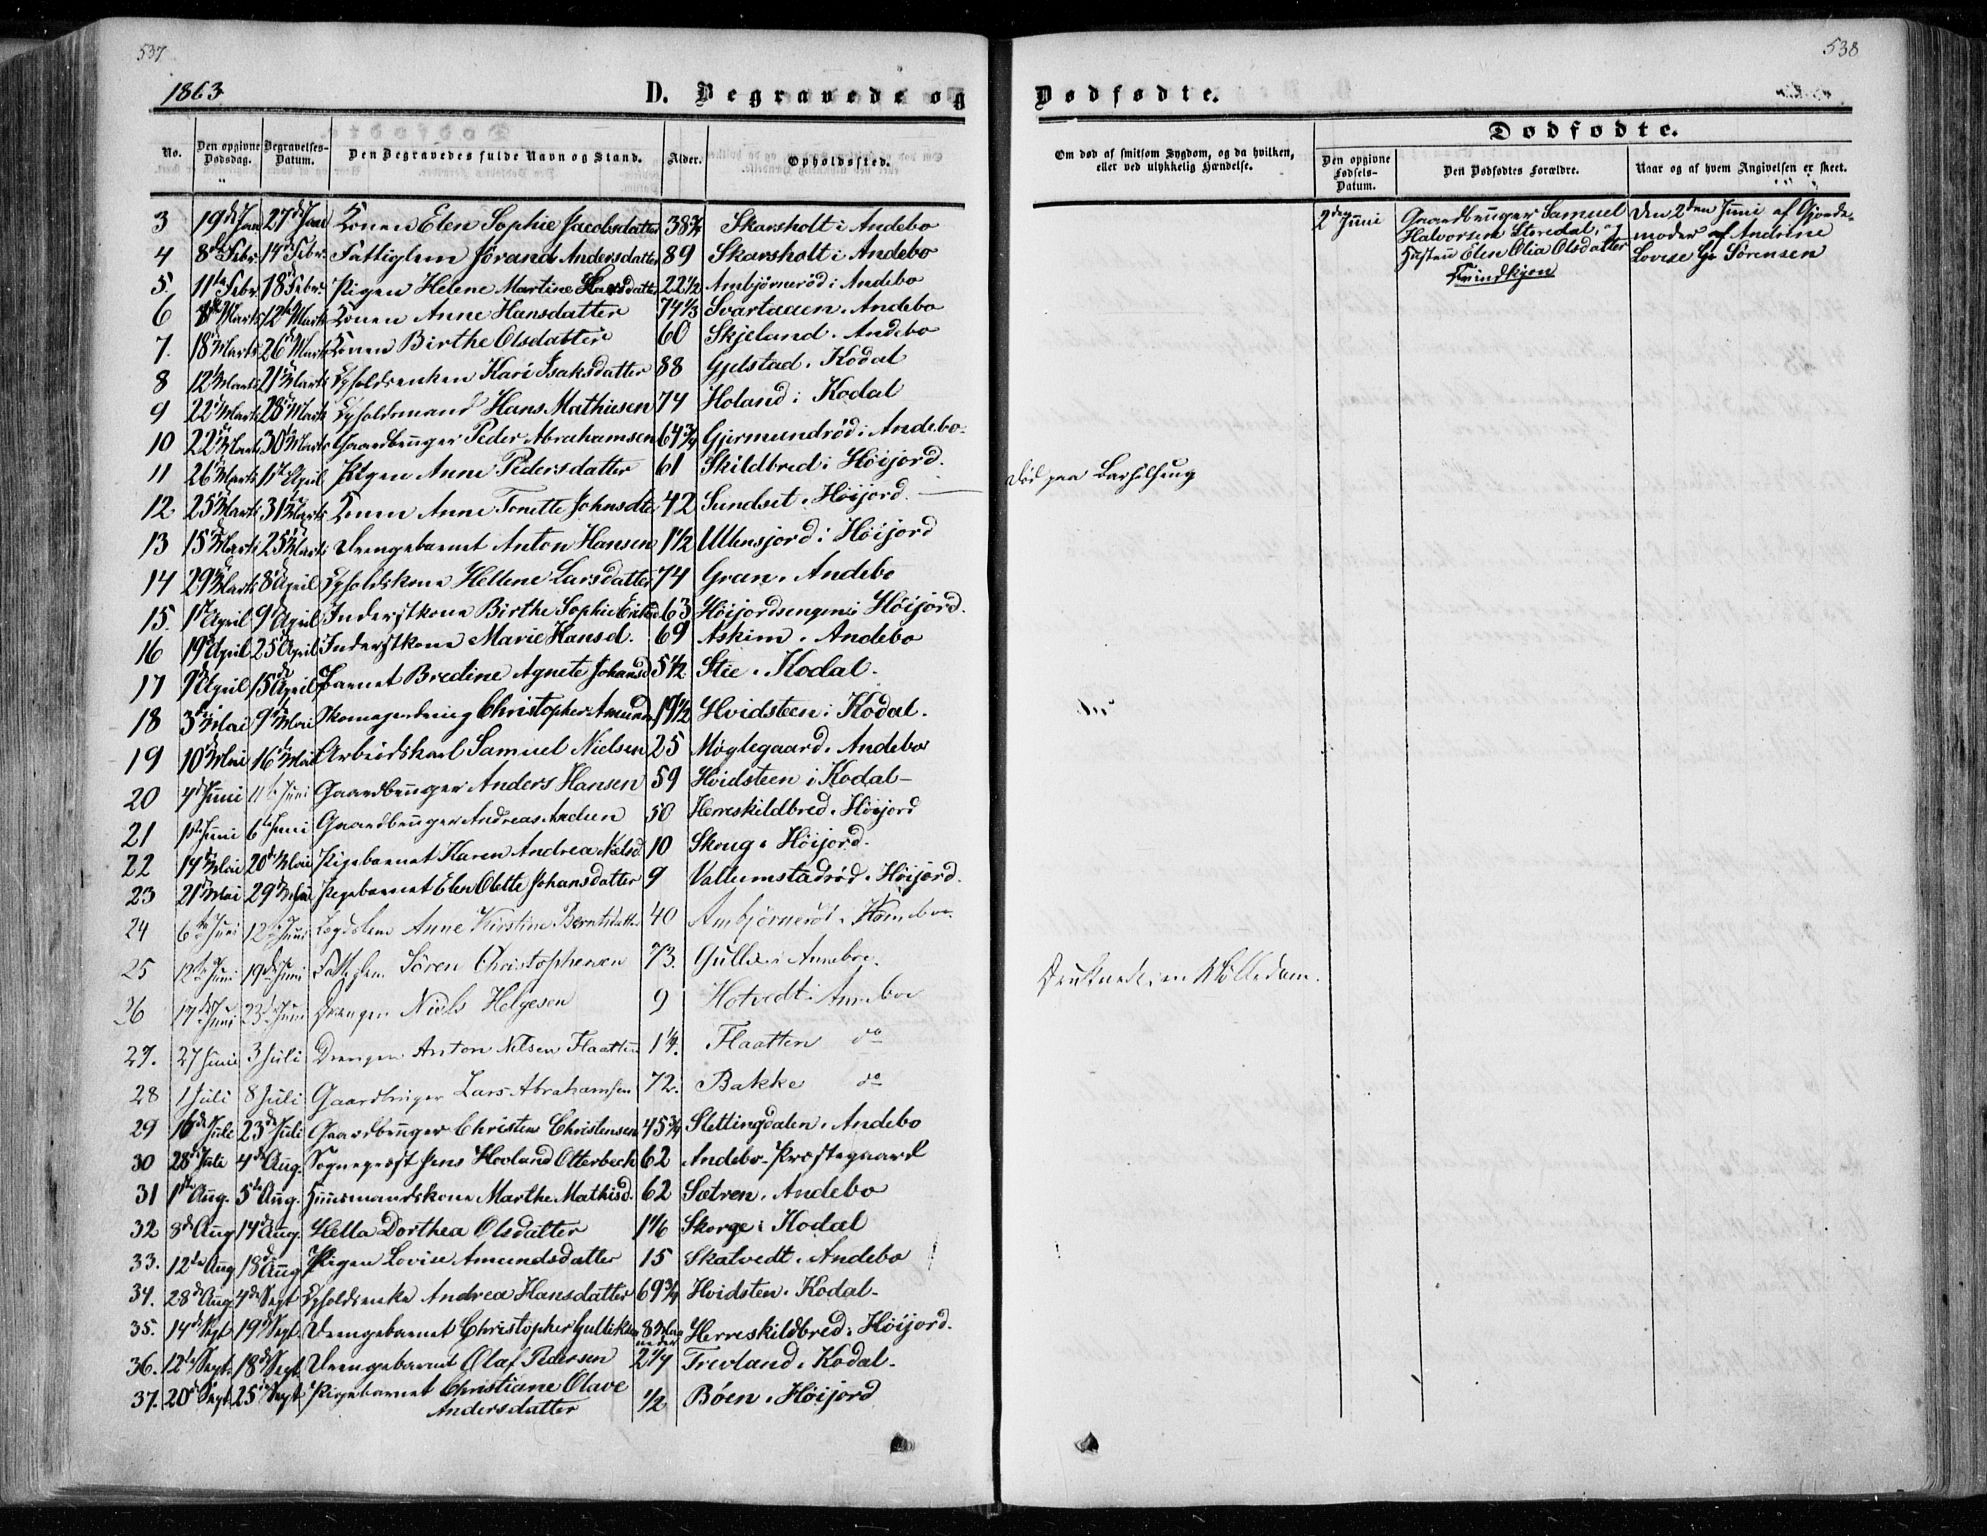 537
1863
D. Begravede og
No.
Den opgivne Dødsdag.
Begravelses-Datum.
Den Begravedes fulde Navn og Stand.
Alder.
Opholdssted.
3 19de Jan 27de Jan Konen Elen Sophie Jacobsdatter 38¾ Skarsholt i Andebo
4 8de Febr. 14de Febr. Fattiglem Jørand Andersdatter 89 Skarsholt i Andebo
5. 11te Febr. 18de Febr. Pigen Helene Martine 22½ Ambjørnerød i Andebo
6 8de Marts 12te Marts Konen Anne Hansdatter 74⅓ Svartaaen i Andebo
7. 18de Marts 26de Marts Konen Birthe Olsdatter 60 Skjeland i Andebo
8 12te Marts 21de Marts Enken Kari Isaksdatter 88 Gjelstad i Kodal
9 22de Marts 28de Marts Hans Mathiesen 74 Holand i Kodal
10 22de Marts 30de Marts Gaardbruger Peder Abrahamsen 64¾ Gjermundrød i Andebo
11 26de Marts 1ste April Pigen Anne Pedersdatter 61 Skildbred i Høijord.
12 25de Marts 31de Marts Konen Anne Tonette Johnsdtr 42 Sundset i Høijord.
13 15de Marts 25de Marts Drengebarnet Anton Hansen 1½ Ullensjord i Høijord
14 29de Marts 8de April Hellene Larsdatter 74 Gran i Andebo
15. 1ste April 9de April Inderstkone Birthe Sophie 63 Høijordsengen i Høijord.
16 19de April 25de April Inderstkone Marie Hansd. 69 Askim i Andebo
17 9de April 15de April Barnet Bredine Agnete Johansd 5½ Stie i Kodal.
18 3de Mai 9de Mai Christopher 19½ Hvidsteen i Kodal.
19 10de Mai 16de Mai Arbeidskarl Samuel Nielsen 25 Møglegaard i Andebo
20 4de Juni 11te Juni Gaardbruger Anders Hansen 59 Hvidsteen i Kodal
21 1ste Juni 6te Juni Gaardbruger Andreas 50 Herreskildbred i Høijord
22 14de Mai 20de Mai Pigebarnet Karen Andrea Nielsd. 10 Skoug i Høijord.
23 21de Mai 29de Mai Pigebarnet Elen Olette Johansdatter 9 Vallumstadrød i Høijord.
24 6te Juni 12te Juni Anne Kirstine Berntsdatter 40 Ambjørnerød i
25 12te Juni 19de Juni Søren Christophersen 73. Gulli i
36 17de Juni 23de Juni Drengen Niels Helgesen 9 Hotvedt i
27. 27 Juni 3 Juli Drengen Anton Nilsen Flaatten 1¼. Flaatten do
28 1 Juli 8 Juli Gaardbruger Lars Abrahamsen 72. Bakke do
29 16de Juli 23de Juli Gaardbruger Christen Christensen 45¾ Slettingdalen i Andebo
30 28de Juli 4de Aug. Sognepræst Jens Hovland Otterbech 62 Andebo Præstegaard
31 1ste Aug. 5te Aug. Huusmandskone Marthe Mathisd. 62 Sætren i Andebo
32 8de Aug 14de Aug. Hella Dorthea Olsdatter 1⅙ Skorge i Kodal
33. 12te Aug 18de Aug Pigen Lovise Amundsdatter 15 Skatvedt i Andebo
34. 28de Aug. 4de Sept Andrea Hansdatter 69¾ Hvidsten i Kodal
35. 14de Sept 19de Sept. Drengebarnet Christopher Gulliksen 8 Herreskildbred i Høijord.
36. 12te Sept. 18de Sept. Drengebarnet Olaf Pedersen 2¼ Trevland i Kodal
37. 20de Sept 25de Sept Pigebarnet Christiane Olave
Andersdatter ½ Bøen i Høijord
538
Dødfødte.
Dødfødte.
Om død af smitsom Sygdom, og da hvilken, eller ved ulykkelig Hændelse.
Den opgivne Fødsels-Datum.
Den Dødfødtes Forældre.
Naar og af hvem Angivelsen er skeet.
død paa Barselseng
Druknede i en Mølledam.
2den Juni
Gaardbruger Samuel
Halvorsen Storedal, og
Hustru Elen Olia Olsdatter
Den 2den Juni af Gjorde-
moder Andrine
Lovise Sørensen